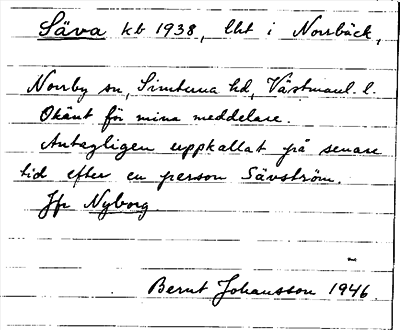 Säva kb 1938, lht i Norrbäck,
Norrby sn, Simtuna hd, Västmanl. l.
Okänt för mina meddelare.
Antagligen uppkallat på senare
tid efter en person Sävström.
Jfr Nyborg
Bernt Johansson 1946.